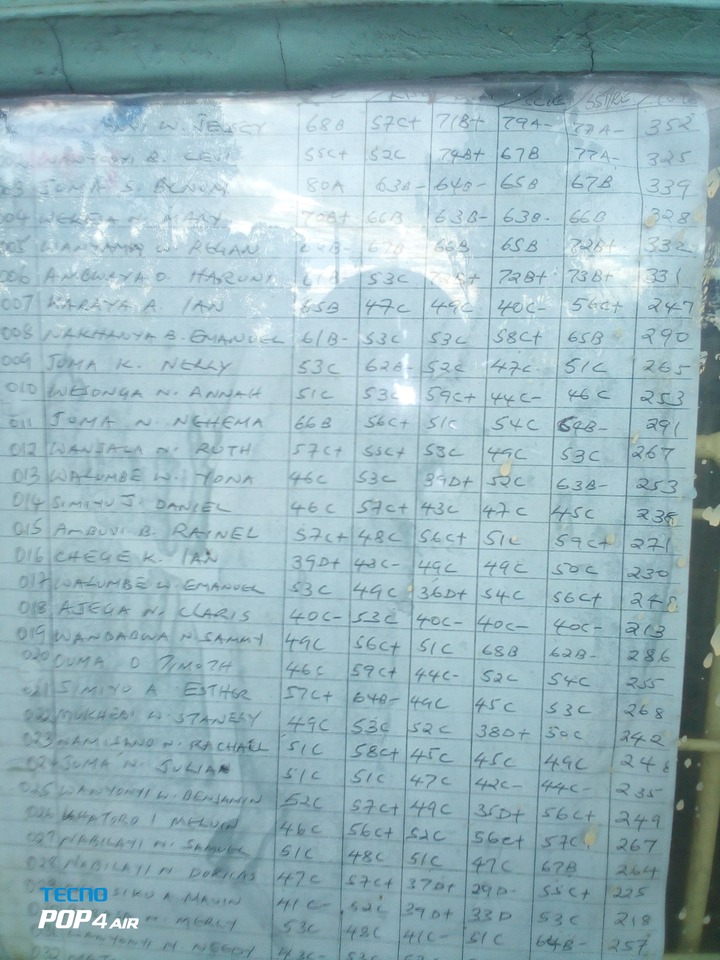 SCIE SST/RE
W. JERCY 68B 57C+ 71B+ 79A- 77A- 352
B. LEVI 55C+ 52C 74B+ 67B 77A- 325
003 JUMA S. 80A 63B- 64B- 65B 67B 339
004 N. MARY 70B+ 66B 63B- 63B- 66B 328
005 WANYAMA W. REGAN 62B- 67B 66B 65B 72B+ 332
006 O. HARUNI 61B 53C 72B+ 73B+ 331
007 A. IAN 65B 47C 49C 40C- 56C+ 247
008 B. EMANUEL 61B- 53C 53C 58C+ 65B 290
009 JUMA K. NELLY 53C 62B- 52C 47C 51C 265
010 WESONGA N. ANNAH 51C 53C 59C+ 44C- 46C 253
011 JUMA N. NEHEMA 66B 56C+ 51C 54C 64B- 291
012 WANJALA N. RUTH 57C+ 55C+ 53C 49C 53C 267
013 WALUMBE W. IYONA 46C 53C 39D+ 52C 63B- 253
014 SIMIYU J. DANIEL 46C 57C+ 43C 47C 45C 238
015 AMBUVI B. RAINEL 57C+ 48C 56C+ 51C 59C+ 271
016 CHEGE K. IAN 39D+ 43C- 49C 49C 50C 230
017 WALUMBE W. EMANUEL 53C 49C 36D+ 54C 56C+ 248
018 AJEGA N. CLARIS 40C- 53C 40C- 40C- 40C- 213
019 WANDABWA N. SAMMY 49C 56C+ 51C 68B 62B- 286
020 OUMA O TIMOTH 46C 59C+ 44C- 52C 54C 255
021 SIMIYU A ESTHER 57C+ 64B- 49C 45C 53C 268
022 W. STANELY 49C 53C 52C 38D+ 50C 242
023 N. RACHAEL 51C 58C+ 45C 45C 49C 248
024 JUMA N. JULIAN 51C 51C 47C 42C- 44C- 235
025 WANYONYI W. BENJAMIN 52C 57C+ 49C 35D+ 56C+ 249
026 KHATORO I MELVIN 46C 56C+ 52C 56C+ 57C 267
027 NABILAYI N. SAMUEL 51C 48C 51C 47C 67B 264
028 NABILAYI N DORCAS 47C 57C+ 37D+ 29D- 55C+ 225
A MAVIN 41C- 52C 39D+ 33D 53C 218
MERCY 53C 48C 41C- 51C 64B- 257
WANYONYI N 43C-
032
TECNO
POP 4 AIR